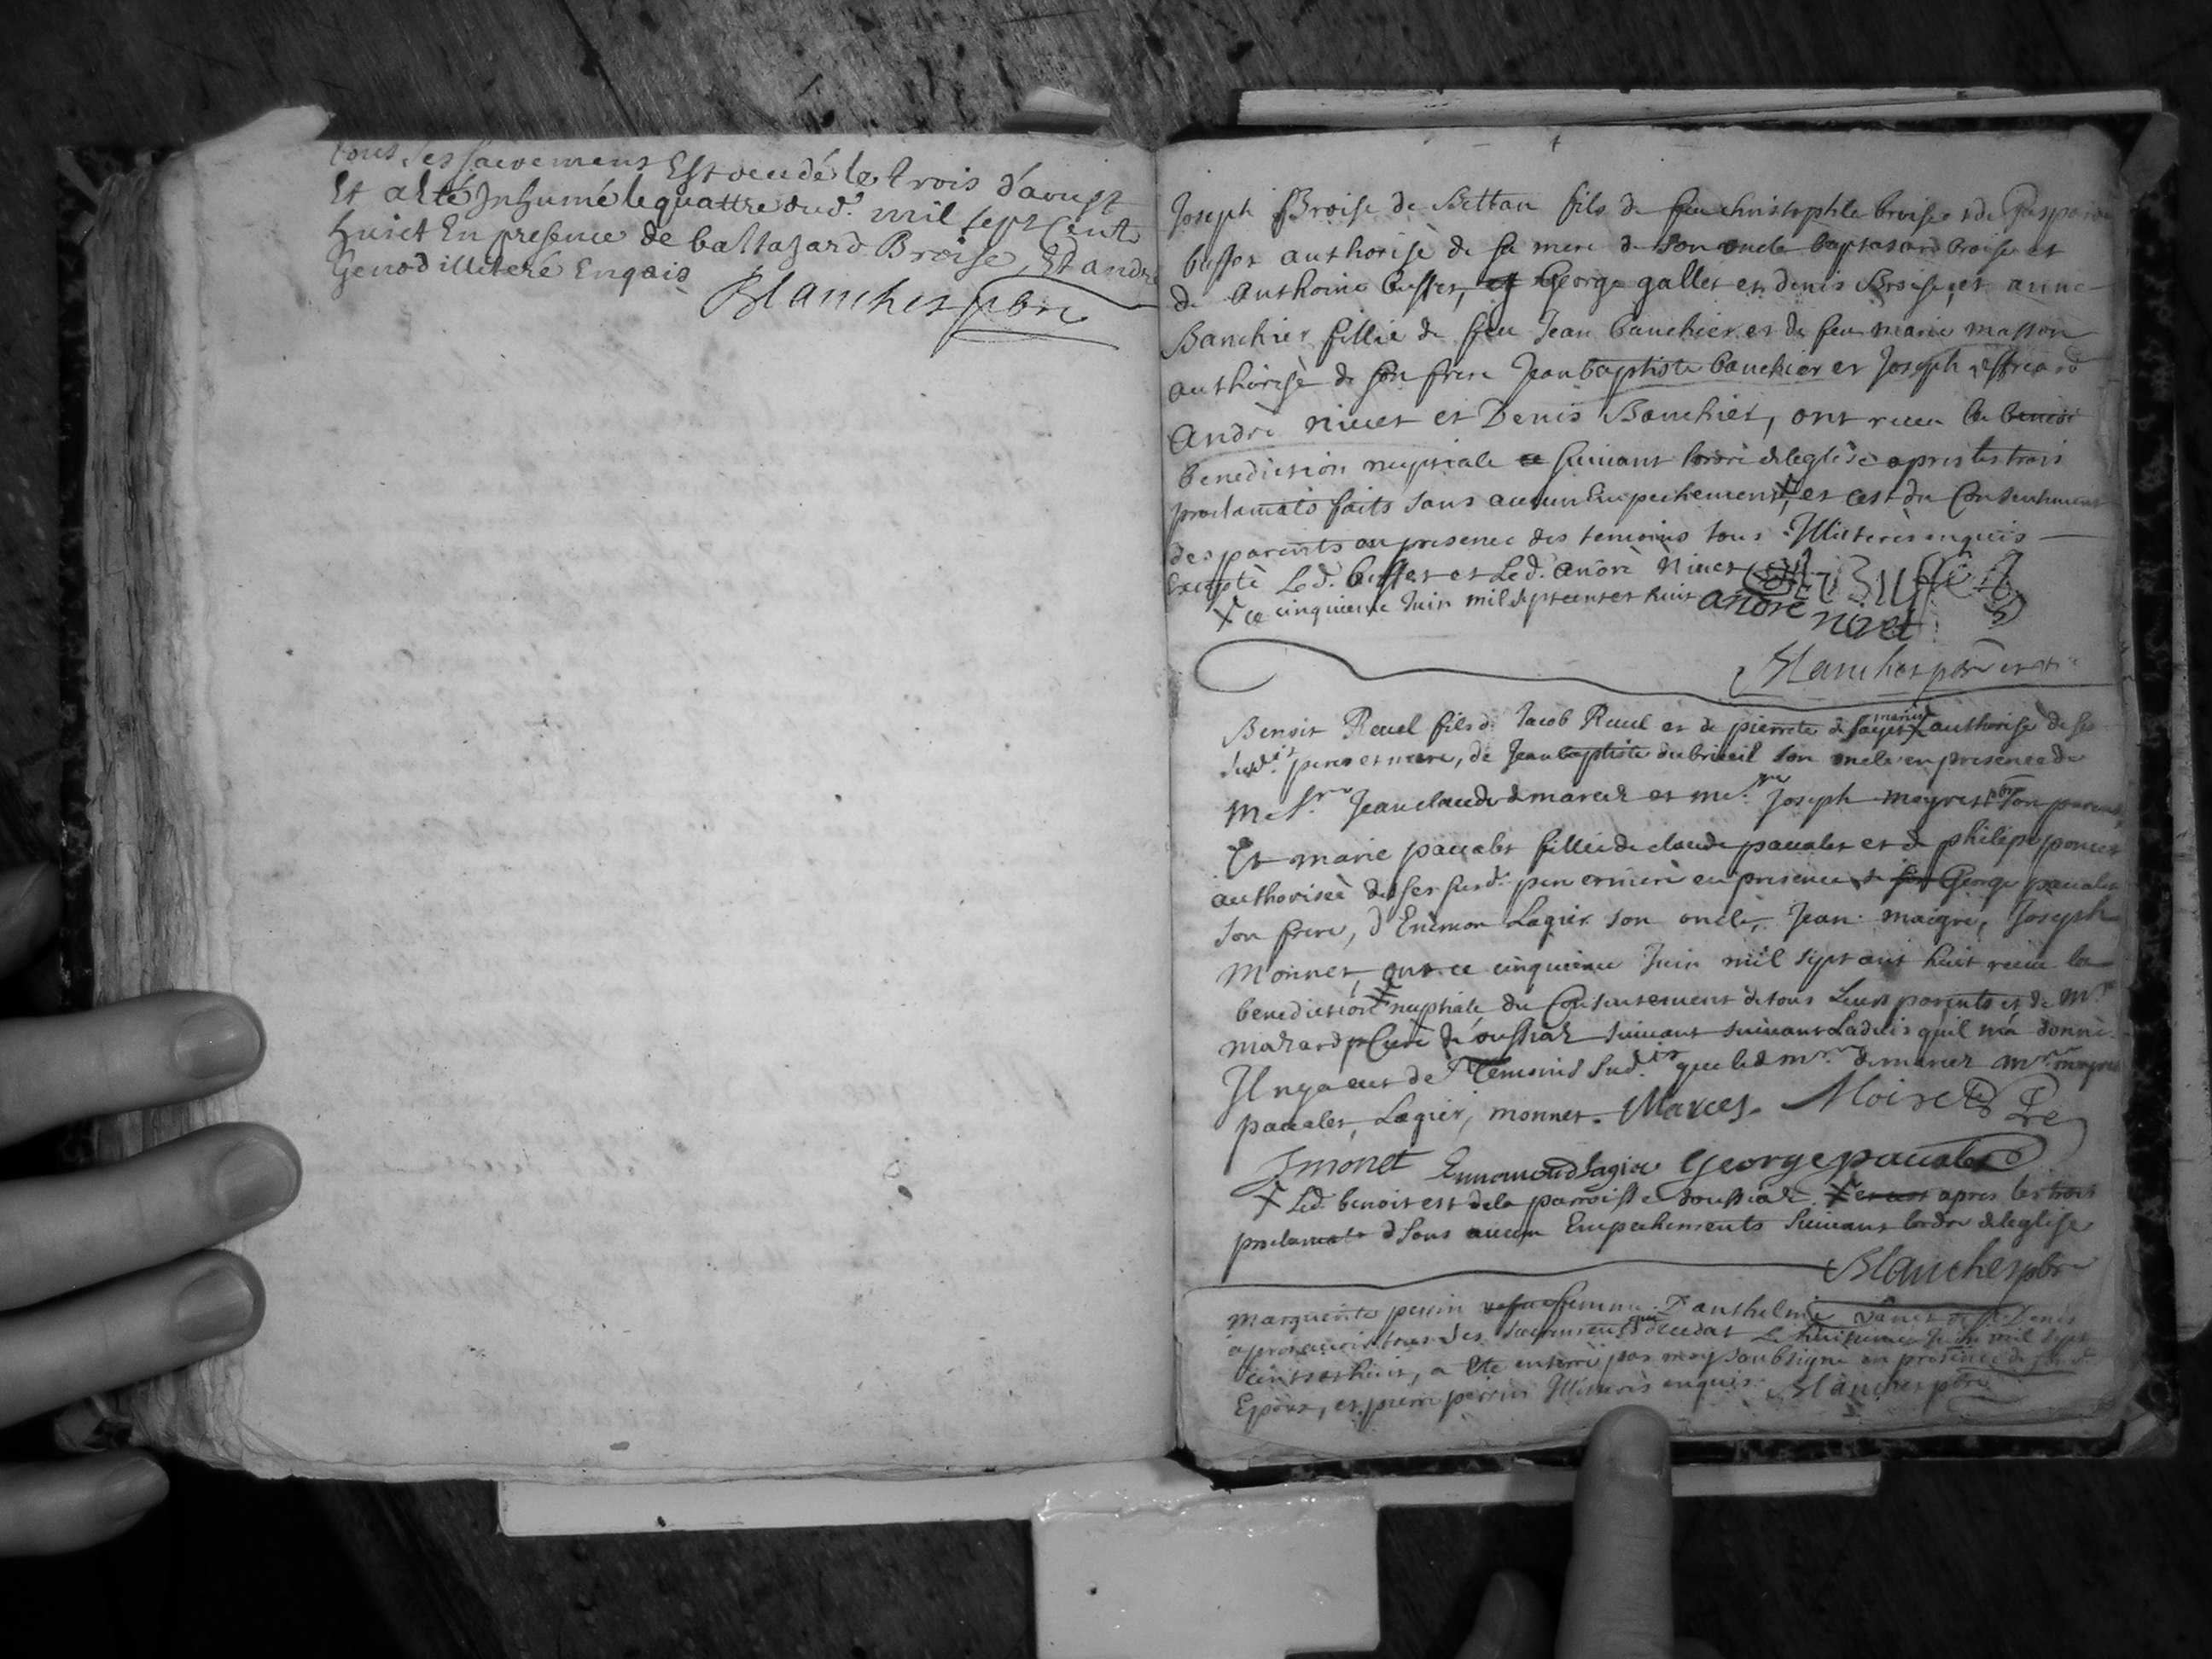 tous ses sacremens Est decedé le trois d'aoust
Et a Esté Inhumé le quattre dud. mil sept Cents
huict En presence de baltazard Broise, Et andre
Genod illiteré Enquis
Blanchet pbre
Joseph Broise de Bettan fils de feu christophle broise et de Gasparde
buffet authorisé de sa mere de son oncle baptasard broise et
de Anthoine buffet, George gallet et denis Broise, et anne
Banchier fillie de feu Jean banchier et de feu marie masson
authorisé de son frere Jean baptiste banchier et Joseph
Andrè nivet et Denis Banchier, ont receu la
benediction nuptiale suivant lordre de leglise apres les trois
proclamats faits sans aucun Empechement, et cest du Consentement
des parents en presence des temoins tous Illiterès enquis
Exceptè Led. buffet et Led. Andrè Nivet Buffet
X ce cinquieme Juin mil septcents et huit andre nivet
Blanchet pbre
Benoit Revel fils de Jacob Revel et de pierrete authorisé de ses
susd.its pere et mere, de Jean baptiste dubrieil son oncle en presence de
Mes.re Jean claude demarest et me.re Joseph meyret pbre son parent,
Et marie pacalet fillie de claude pacalet et de philipe poncet
authoriseè de ses susd. pere et mere en presence de George pacalet
son frere, d'Enemon Lagier son oncle, Jean maigre, Joseph
Monnet, ont ce cinquieme Juin mil sept cent huit receu la
benediction X nuptiale du Consentement de tous Leurs parents et de Mr.
mazard Curè d'oussiaz suivant suivant Ladvis quil ma donnè
Il ny a eut de Temoins Susd.its que led mre. demarest mre. meyret
pacalet, Lagier, monnet. Marest. Moiret Pre
J monet Ennemond lagier George pacalet
X Led. benoit est de la parroisse doussiaz. X apres les trois
proclamats sans aucun Empechements suivant lordre de leglise
Blanchet pbre
marguerite perrin femme D'anthelme de St. Denis
apres avoir tous ses sacrements decedat Le huitieme Juin mil sept
cents et huit, a Ete enterrè par moy soubsigne en presence de
Epoux, et pierre perrin Illiterès enquis. Blanchet pbre